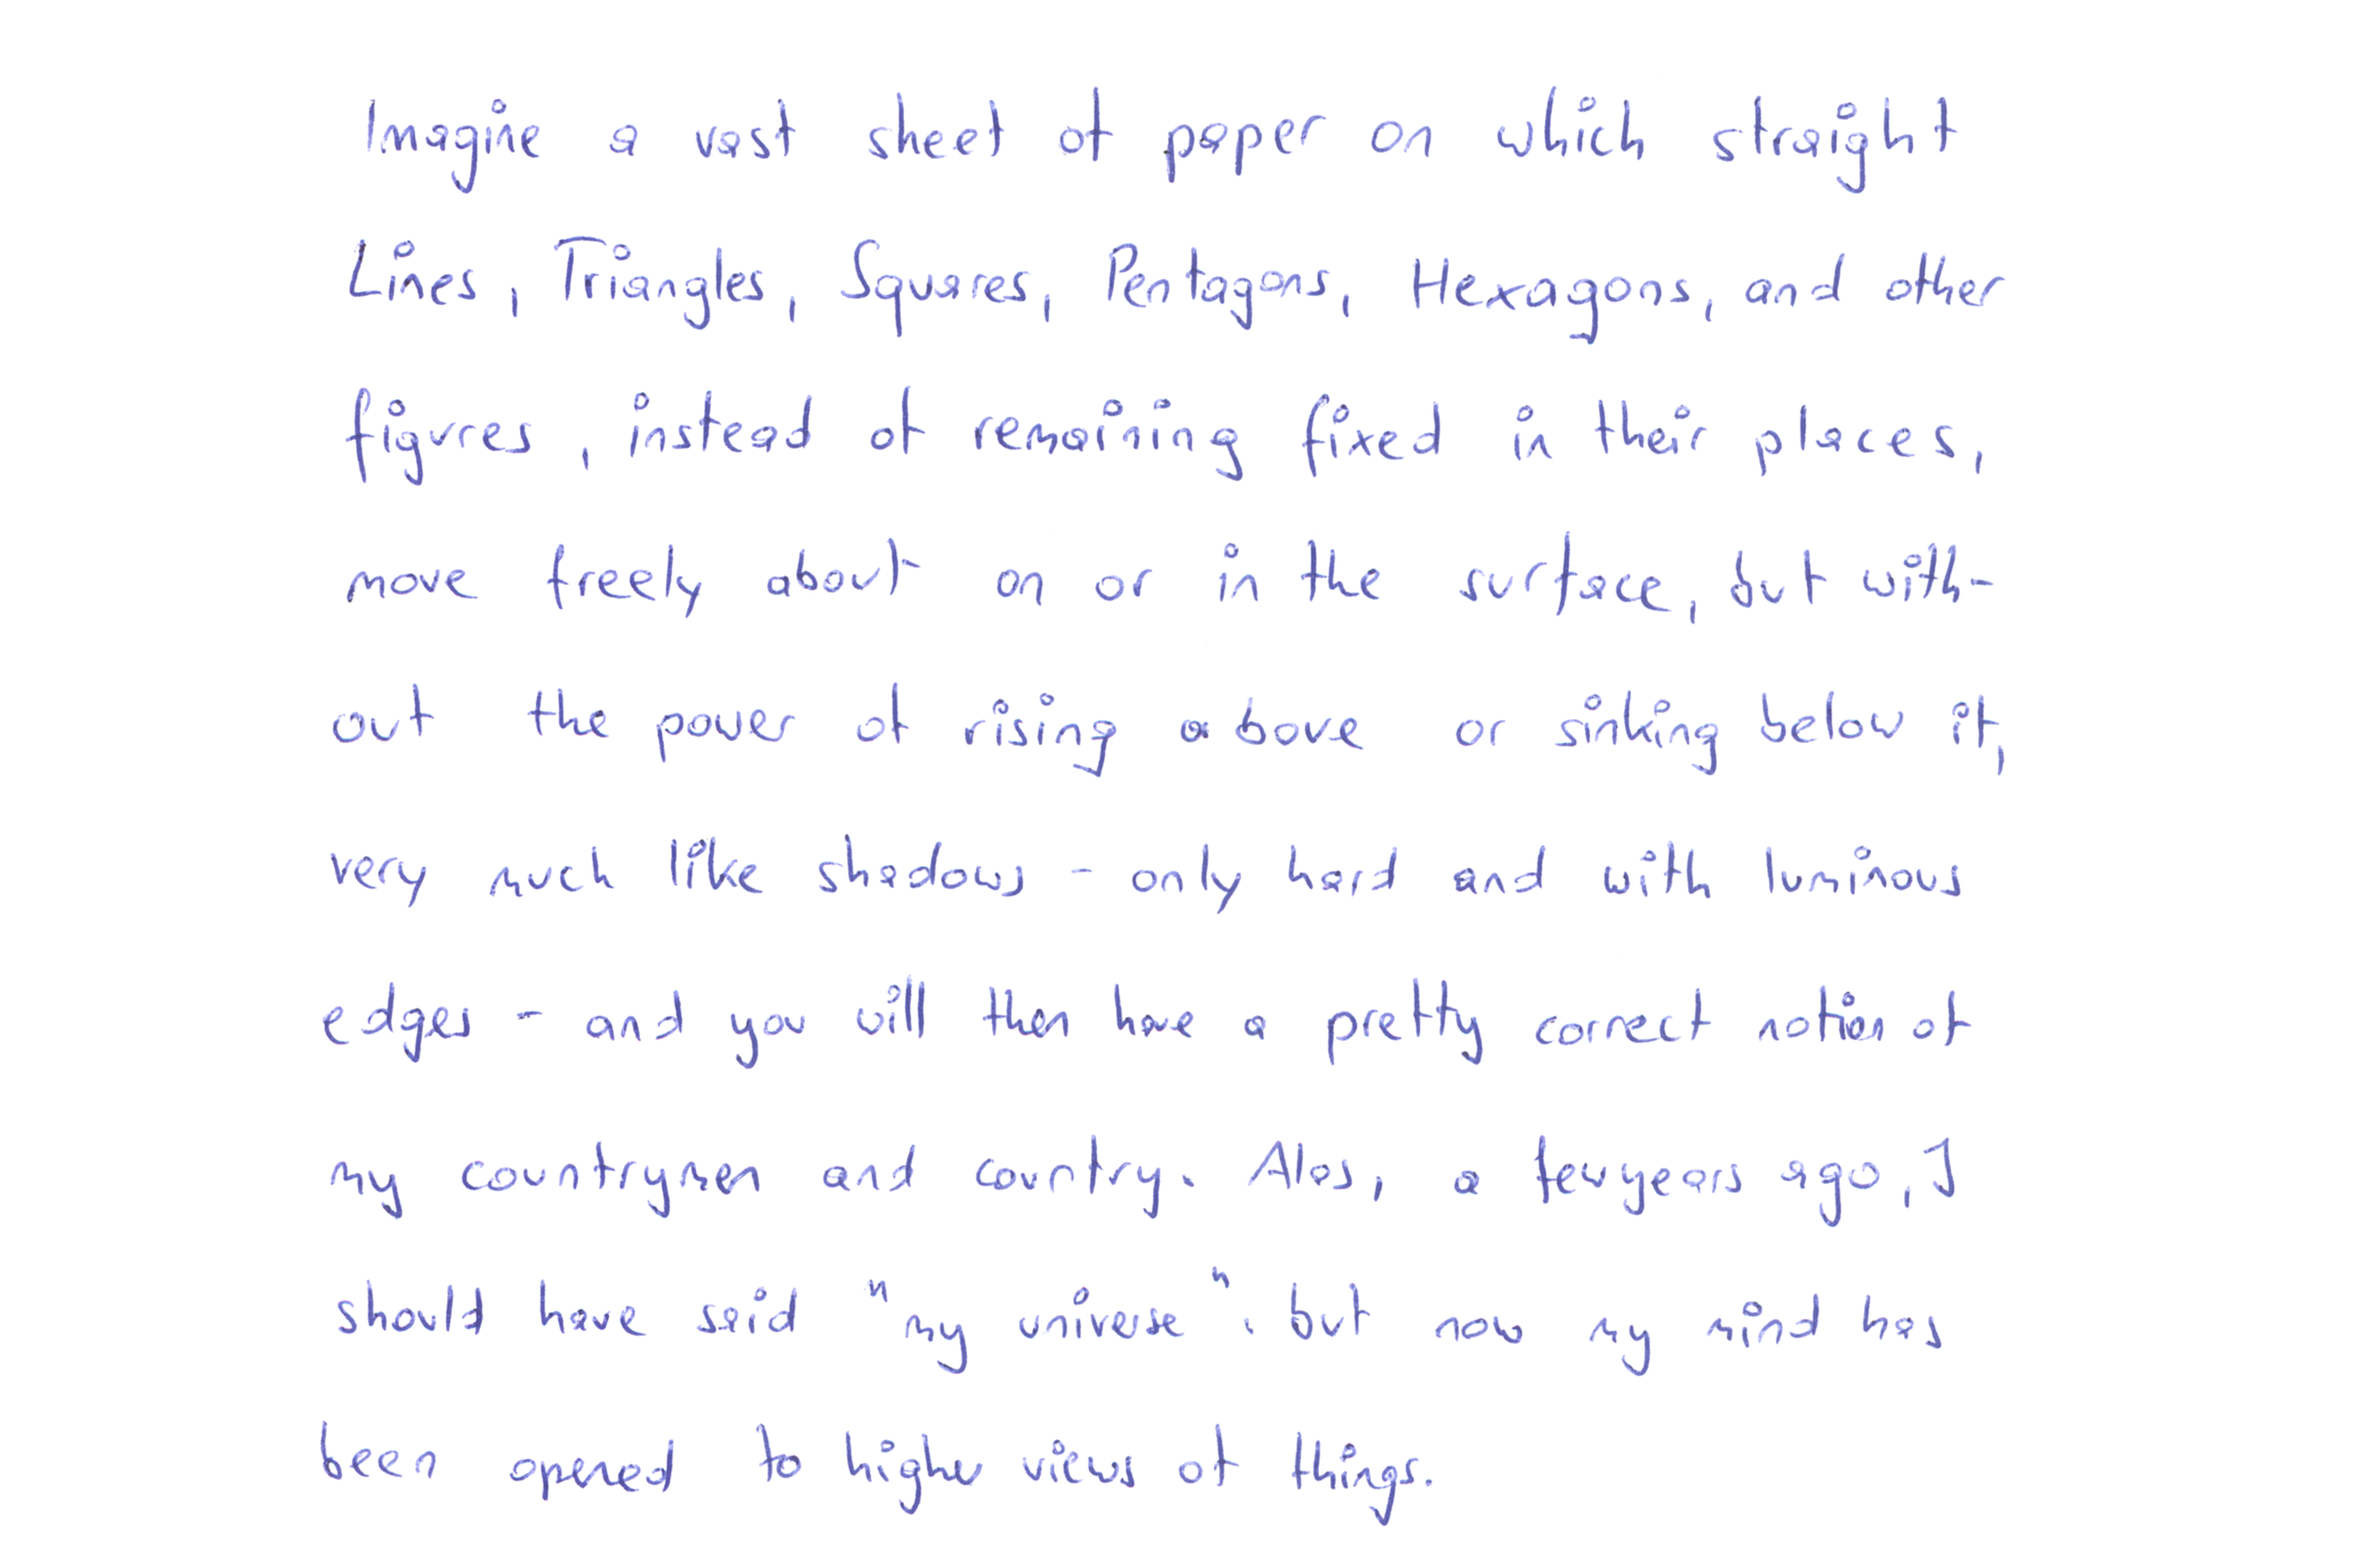 Imagine a vast sheet of paper on which straight
Lines, Triangles, Squares, Pentagons, Hexagons, and other
figures, instead of remaining fixed in their places,
move freely about on or in the surface, but with-
out the power of rising above or sinking below it,
very much like shadows - only hard and with luminous
edges - and you will then have a pretty correct notion of
my countrymen and country. Alas, a few years ago, I
should have said "my universe". but now my mind has
been opened to higher views of things.